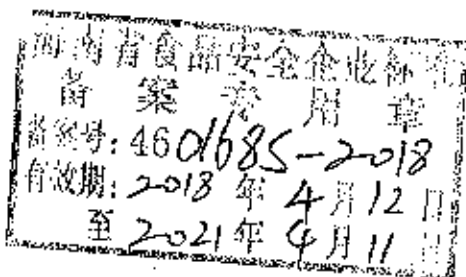 海南省食品安全企业标准
备案专用章
备案号: 460168S-2018
有效期: 2018 年 4 月 12 日
至 2021 年 4 月 11 日